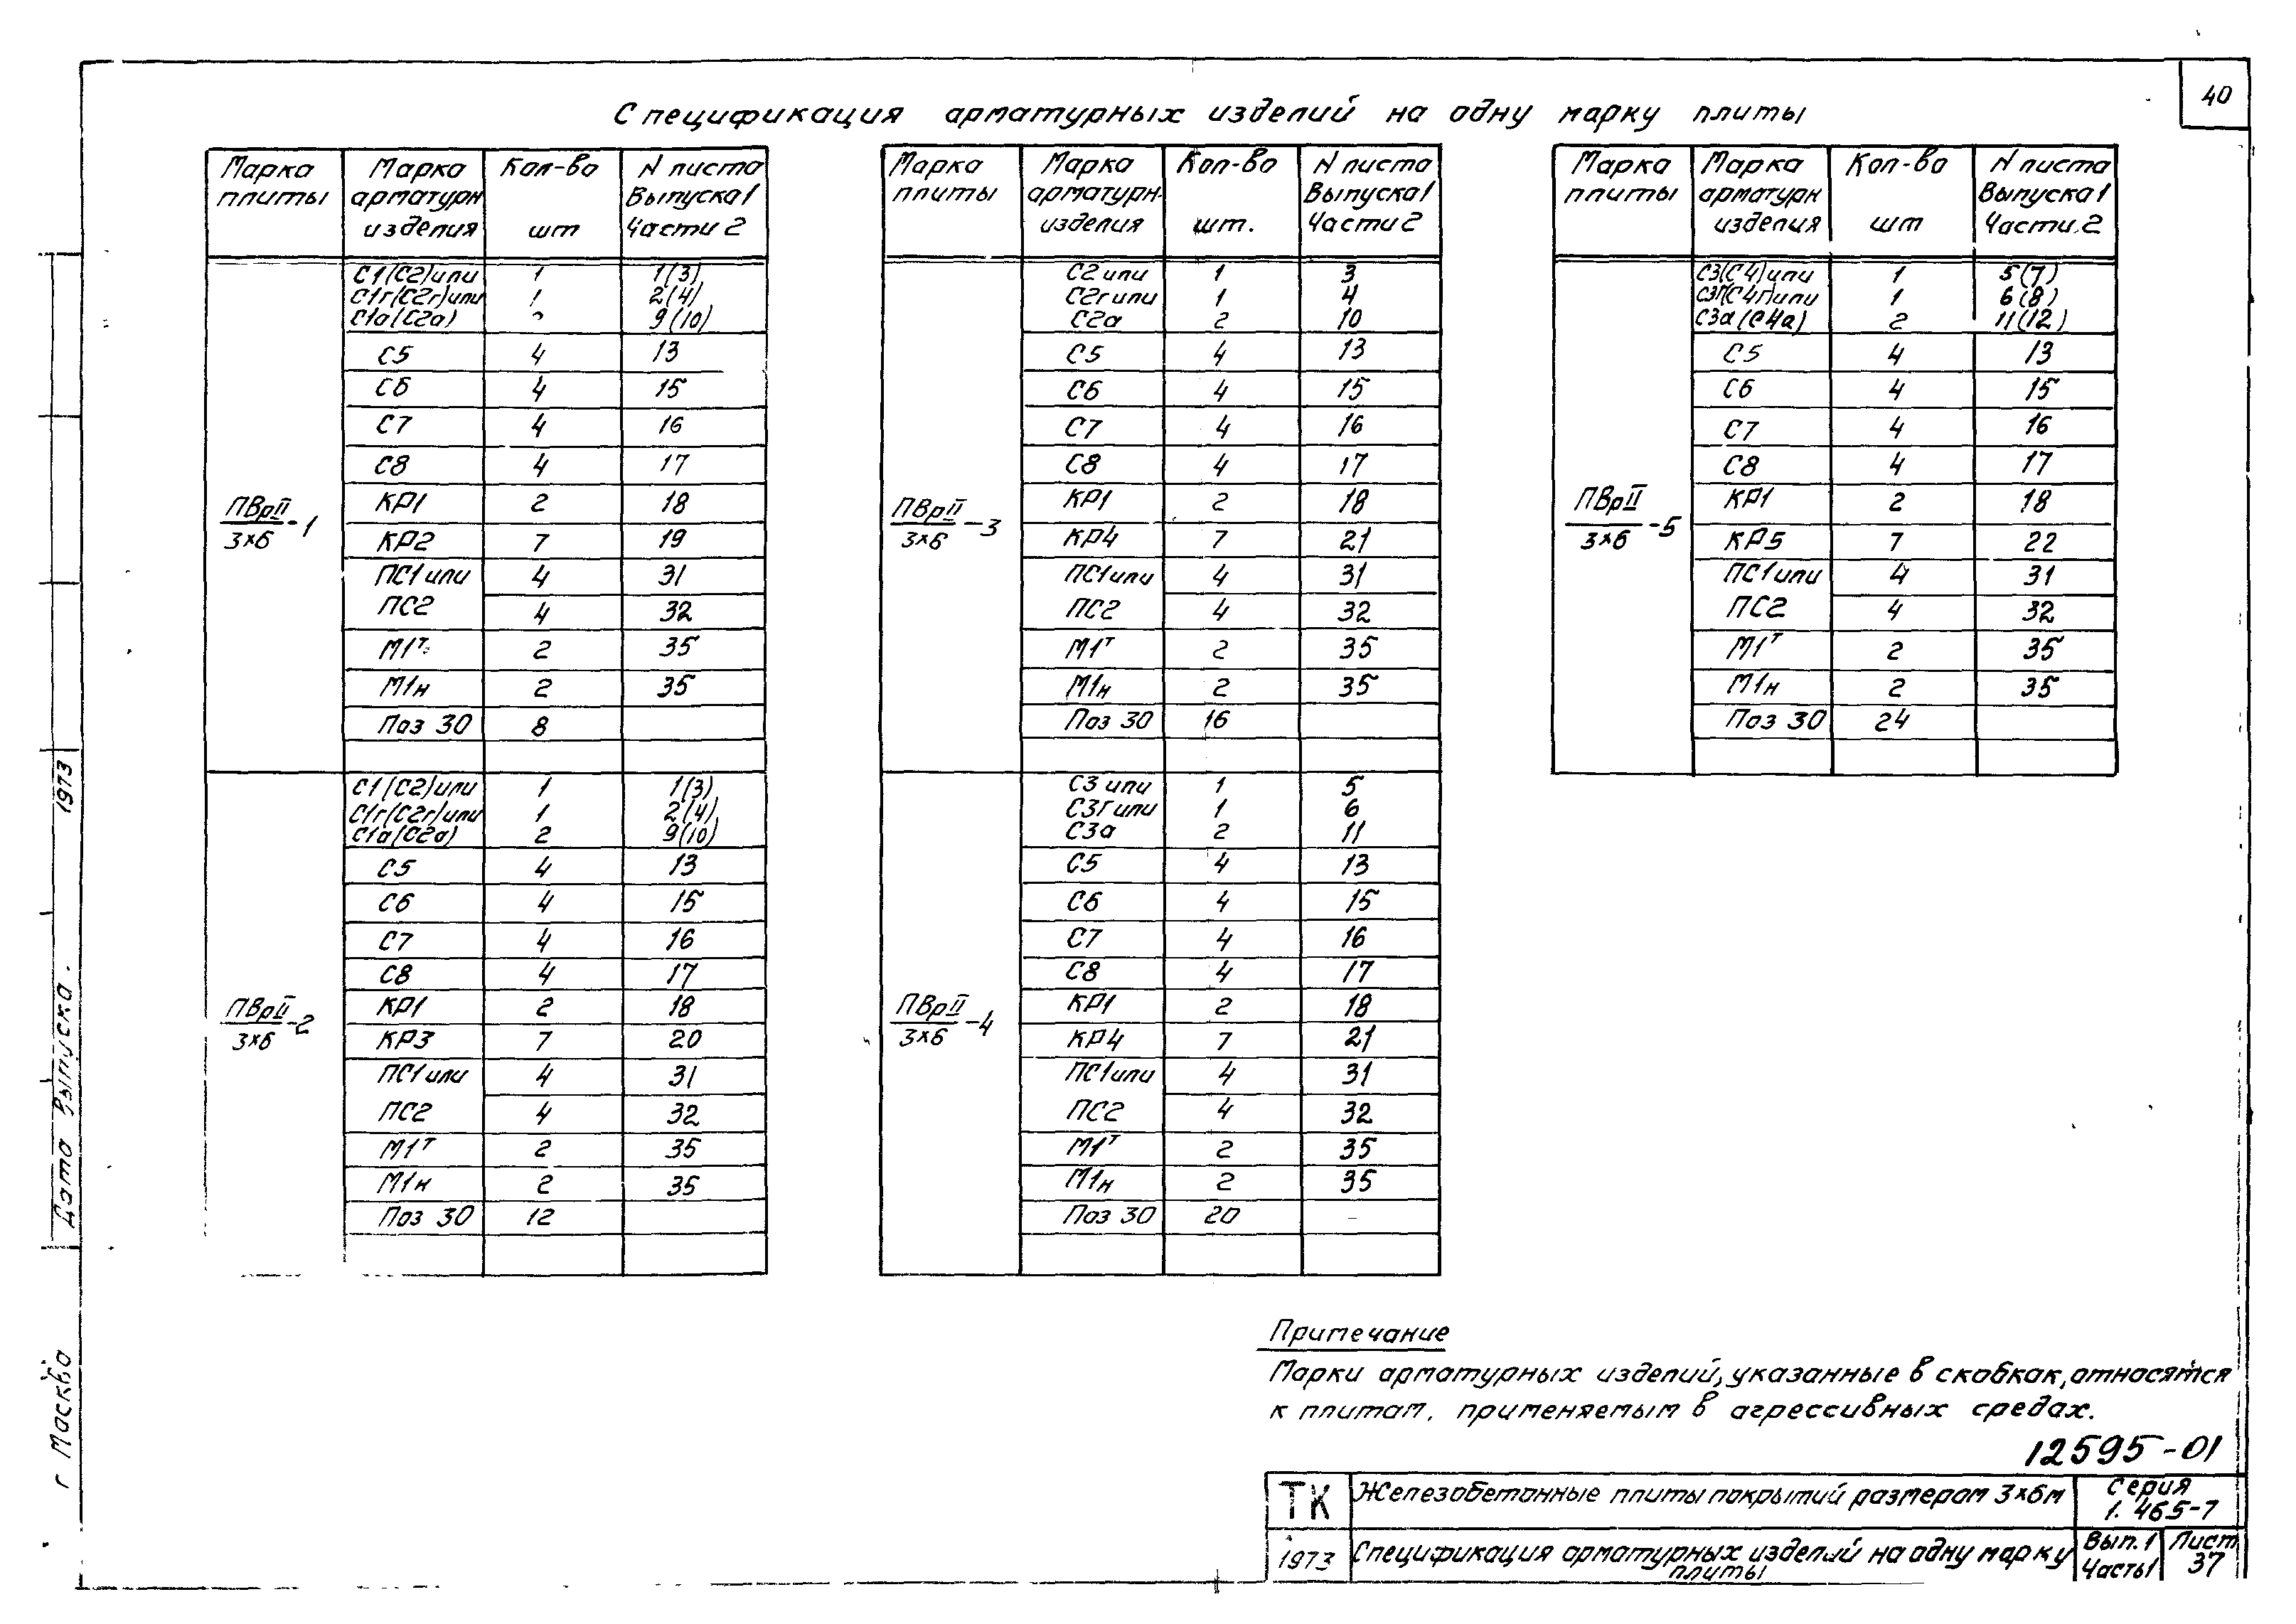 40
Спецификация арматурных изделий на одну марку плиты
Марка плиты | Марка арматурн изделия | Кол-во шт | N листа Выпуска 1 Части 2
ПВрII/3×6-1
С1(С2)или 1 1(3)
С1г(С2г)или 1 2(4)
С1а(С2а) 9(10)
С5 4 13
С6 4 15
С7 4 16
С8 4 17
КР1 2 18
КР2 7 19
ПС1или 4 31
ПС2 4 32
М1т 2 35
М1н 2 35
Поз 30 8
ПВрII/3×6-2
С1(С2)или 1 1(3)
С1г(С2г)или 1 2(4)
С1а(С2а) 2 9(10)
С5 4 13
С6 4 15
С7 4 16
С8 4 17
КР1 2 18
КР3 7 20
ПС1или 4 31
ПС2 4 32
М1т 2 35
М1н 2 35
Поз 30 12
Марка плиты | Марка арматурн. изделия | Кол-во шт. | N листа Выпуска 1 Части 2
ПВрII/3×6-3
С2 или 1 3
С2г или 1 4
С2а 2 10
С5 4 13
С6 4 15
С7 4 16
С8 4 17
КР1 2 18
КР4 7 21
ПС1или 4 31
ПС2 4 32
М1т 2 35
М1н 2 35
Поз 30 16
ПВрII/3×6-4
С3 или 1 5
С3г или 1 6
С3а 2 11
С5 4 13
С6 4 15
С7 4 16
С8 4 17
КР1 2 18
КР4 7 21
ПС1или 4 31
ПС2 4 32
М1т 2 35
М1н 2 35
Поз 30 20 –
Марка плиты | Марка арматурн изделия | Кол-во шт | N листа Выпуска 1 Части 2
ПВрII/3×6-5
С3(С4)или 1 5(7)
С3г(С4г)или 1 6(8)
С3а(С4а) 2 11(12)
С5 4 13
С6 4 15
С7 4 16
С8 4 17
КР1 2 18
КР5 7 22
ПС1или 4 31
ПС2 4 32
М1т 2 35
М1н 2 35
Поз 30 24
Примечание
Марки арматурных изделий, указанные в скобках, относятся
к плитам, применяемым в агрессивных средах.
12595-01
ТК
Железобетонные плиты покрытий размером 3×6м
Серия
1.465-7
1973
Спецификация арматурных изделий на одну марку
плиты
Вып.1
Часть1
Лист
37
г Москва
Дата выпуска.
1973